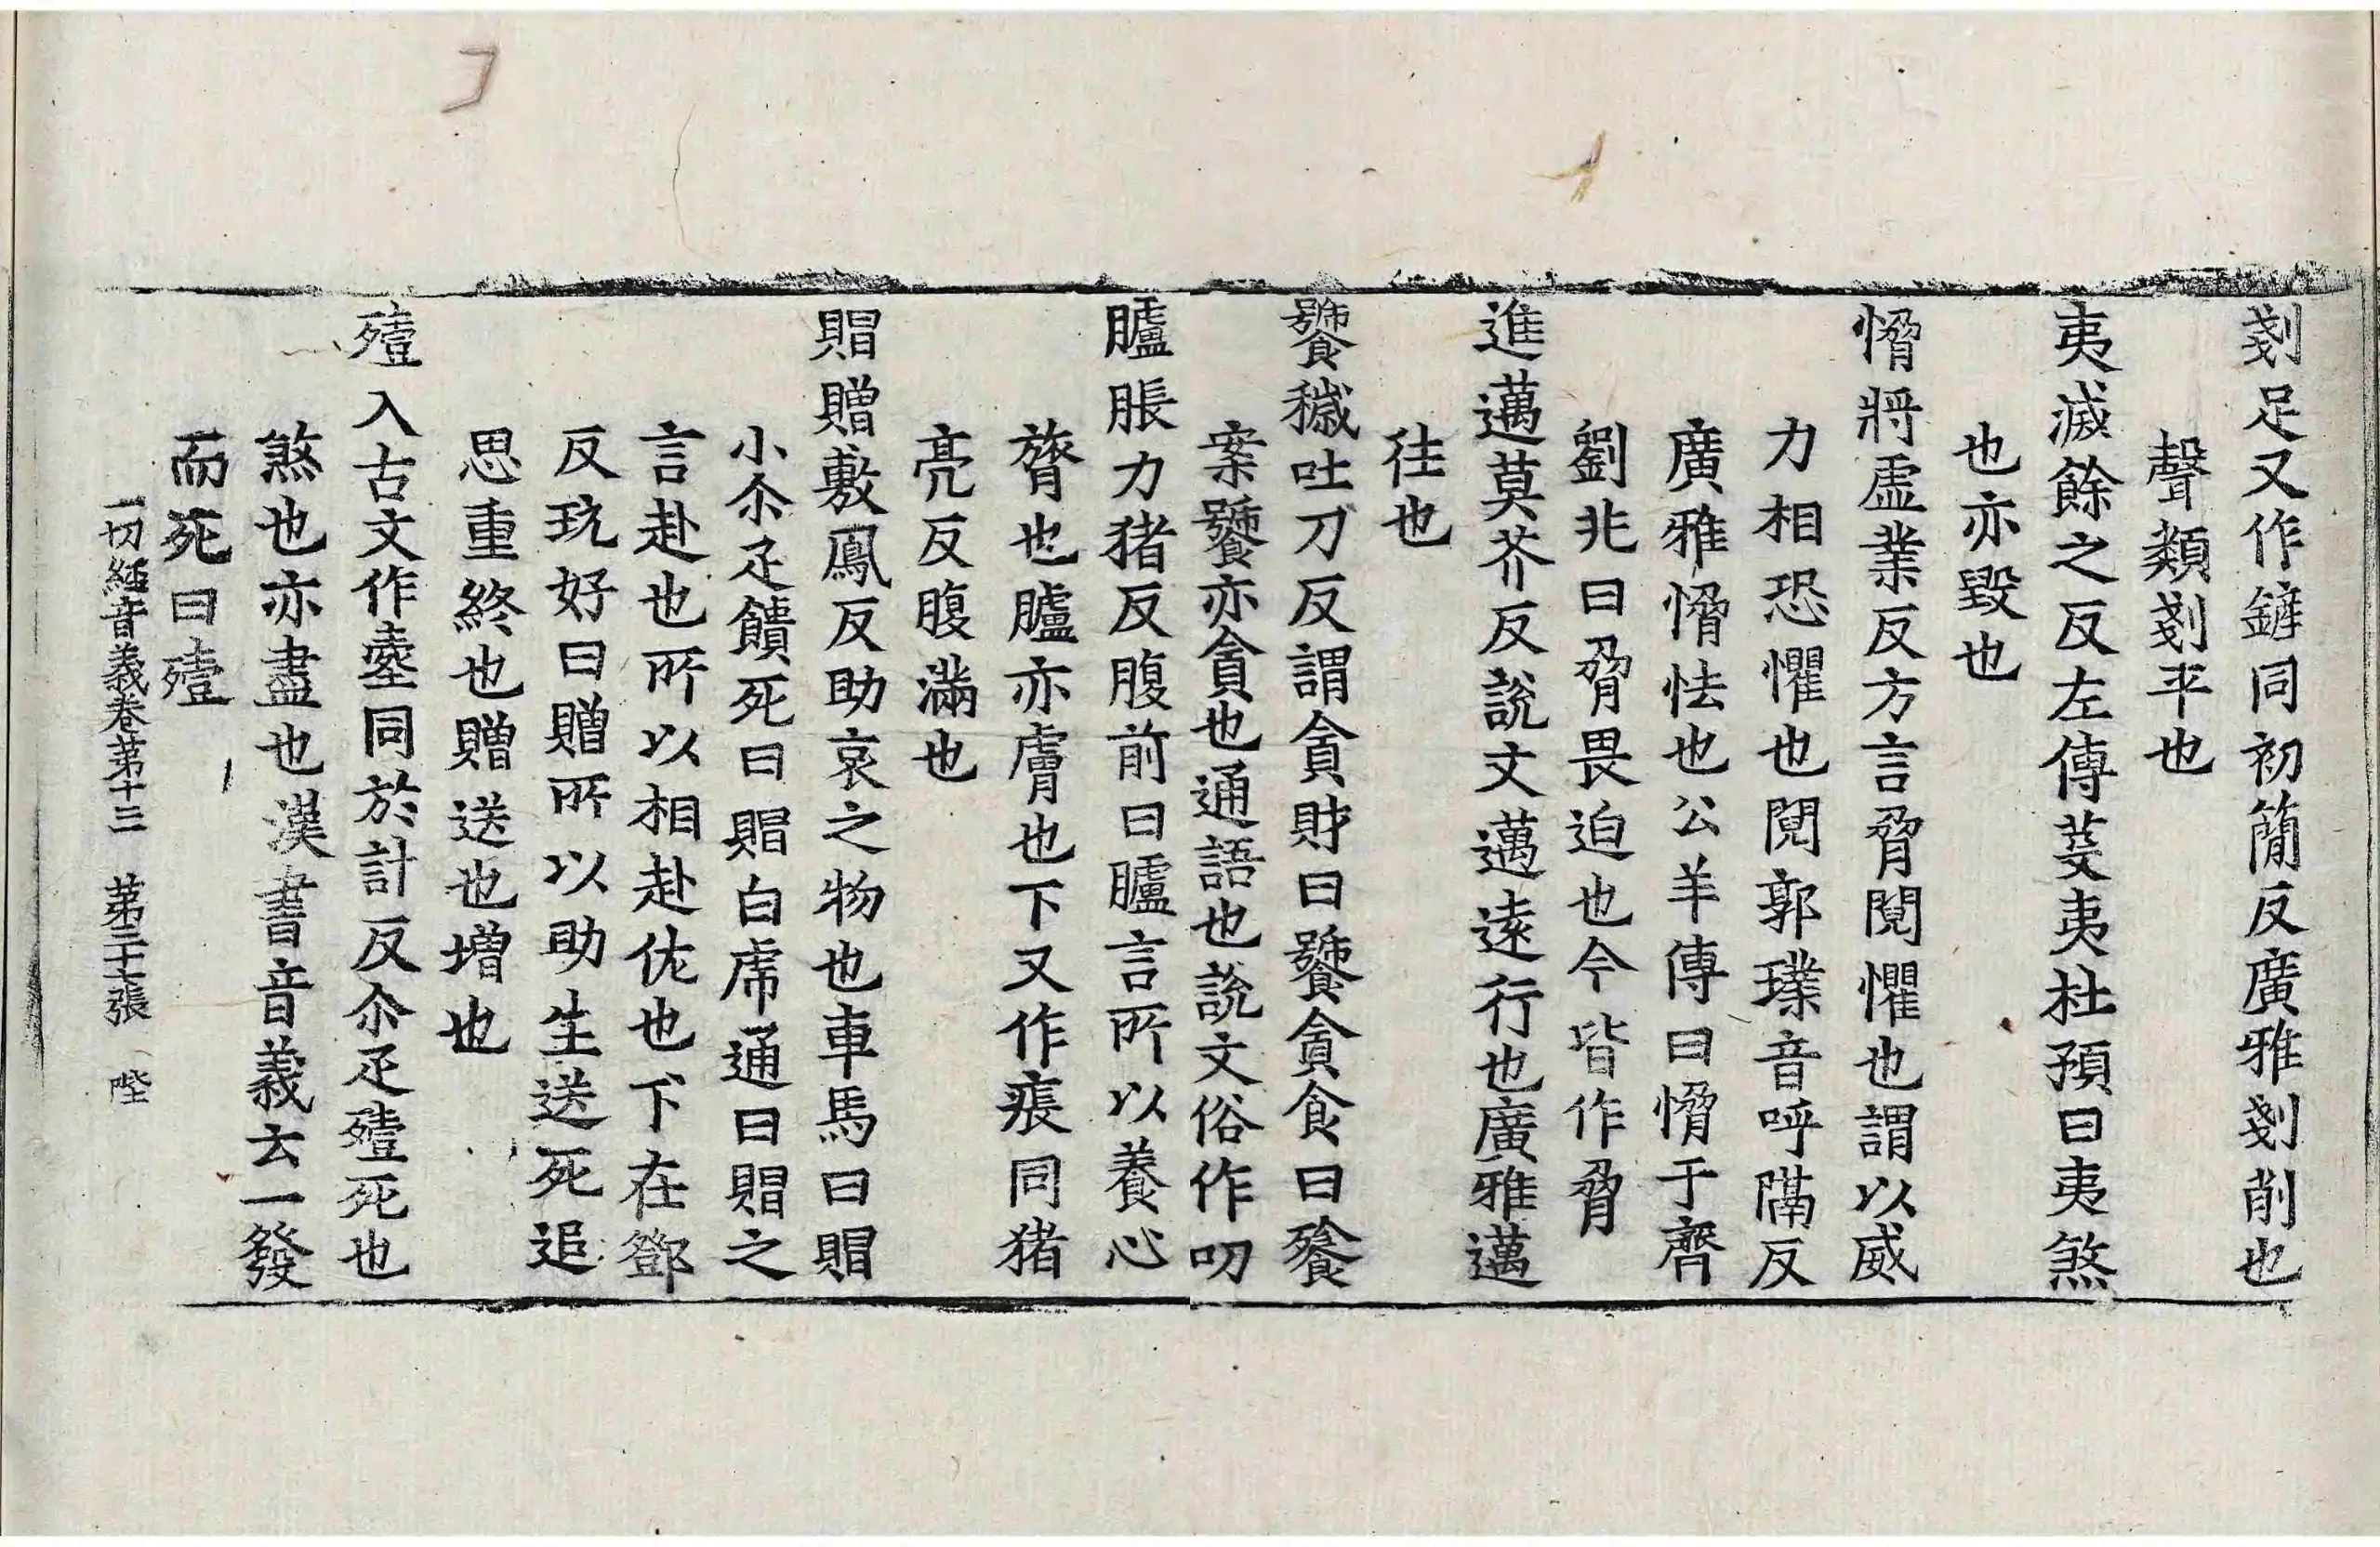 剗足又作鏟同初簡反廣雅剗削也
聲類剗平也
夷滅餘之反左傳芟夷杜預曰夷煞
也亦毀也
愶將虛業反方言脅鬩懼也謂以威
力相恐懼也鬩郭璞音呼隔反
廣雅愶怯也公羊傳曰愶于齊
劉兆曰脅畏迫也今皆作脅
進邁莫芥反說文邁遠行也廣雅邁
往也
饕穢吐刀反謂貪財曰饕貪食曰餮
案饕亦貪也通語也說文俗作叨
臚脹力猪反腹前曰臚言所以養心
膂也臚亦膚也下又作痮同猪
亮反腹滿也
賵贈敷鳳反助哀之物也車馬曰賵
小尒疋饋死曰賵白虎通曰賵之
言赴也所以相赴佐也下在鄧
反玩好曰贈所以助生送死追
思重終也贈送也增也
殪入古文作壺同於計反尒疋殪死也
煞也亦盡也漢書音義云一發
而死曰殪
一切經音義卷第十三　第二十七張　陛